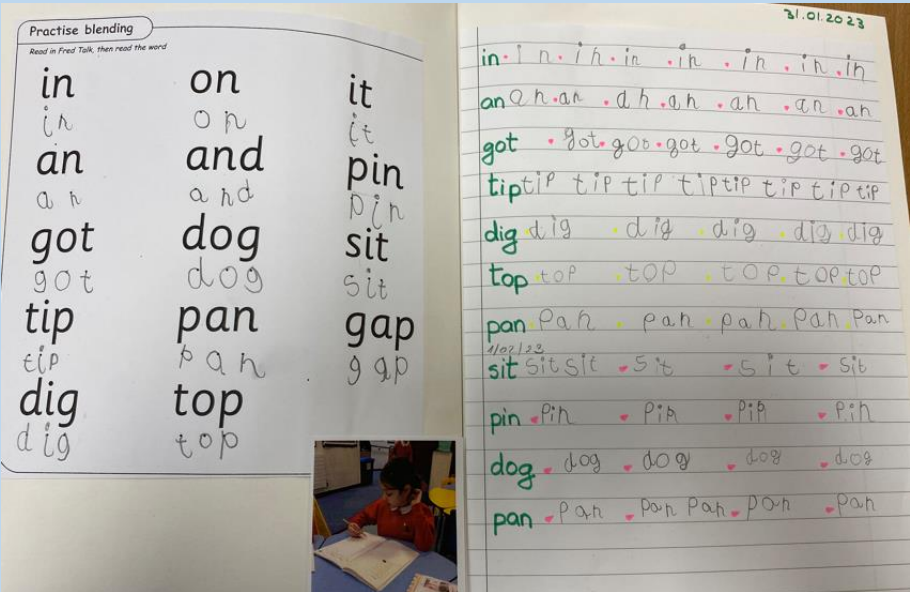 Practise blending
Read in Fred Talk, then read the word
in on it
in on it
an and pin
an and pin
got dog sit
got dog sit
tip pan gap
tip pan gap
dig top
dig top
31.01.2023
in in in in in in in in
an an an an an an an an
got got got got got got got
tip tip tip tip tip tip tip tip tip
dig dig dig dig dig dig
top top top top top top
pan pan pan pan pan pan
1/02/23
sit sit sit sit sit sit
pin pin pin pin pin
dog dog dog dog dog
pan pan pan pan pan pan